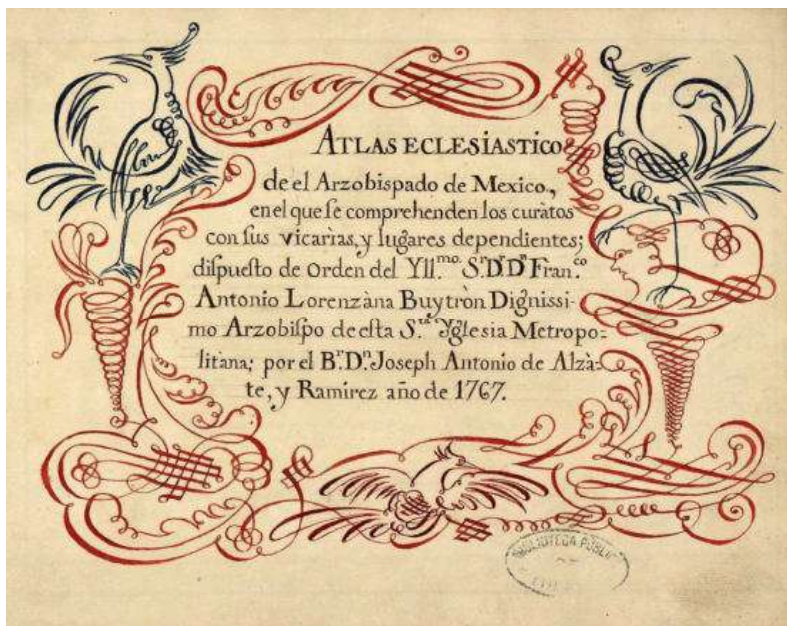 ATLAS ECLESIASTICO
de el Arzobispado de Mexico.,
en el que ſe comprehenden los curàtos
con ſus vicarìas, y lugares dependientes;
diſpueſto de Orden del Yll.mo. S.r D.r D.n Fran.co
Antonio Lorenzàna Buytròn Digniſsi-
mo Arzobiſpo de eſta S.ta Yglesia Metropo-
litana; por el B.r D.n Joseph Antonio de Alzà-
te, y Ramirez año de 1767.
BIBLIOTECA PÚBLIC